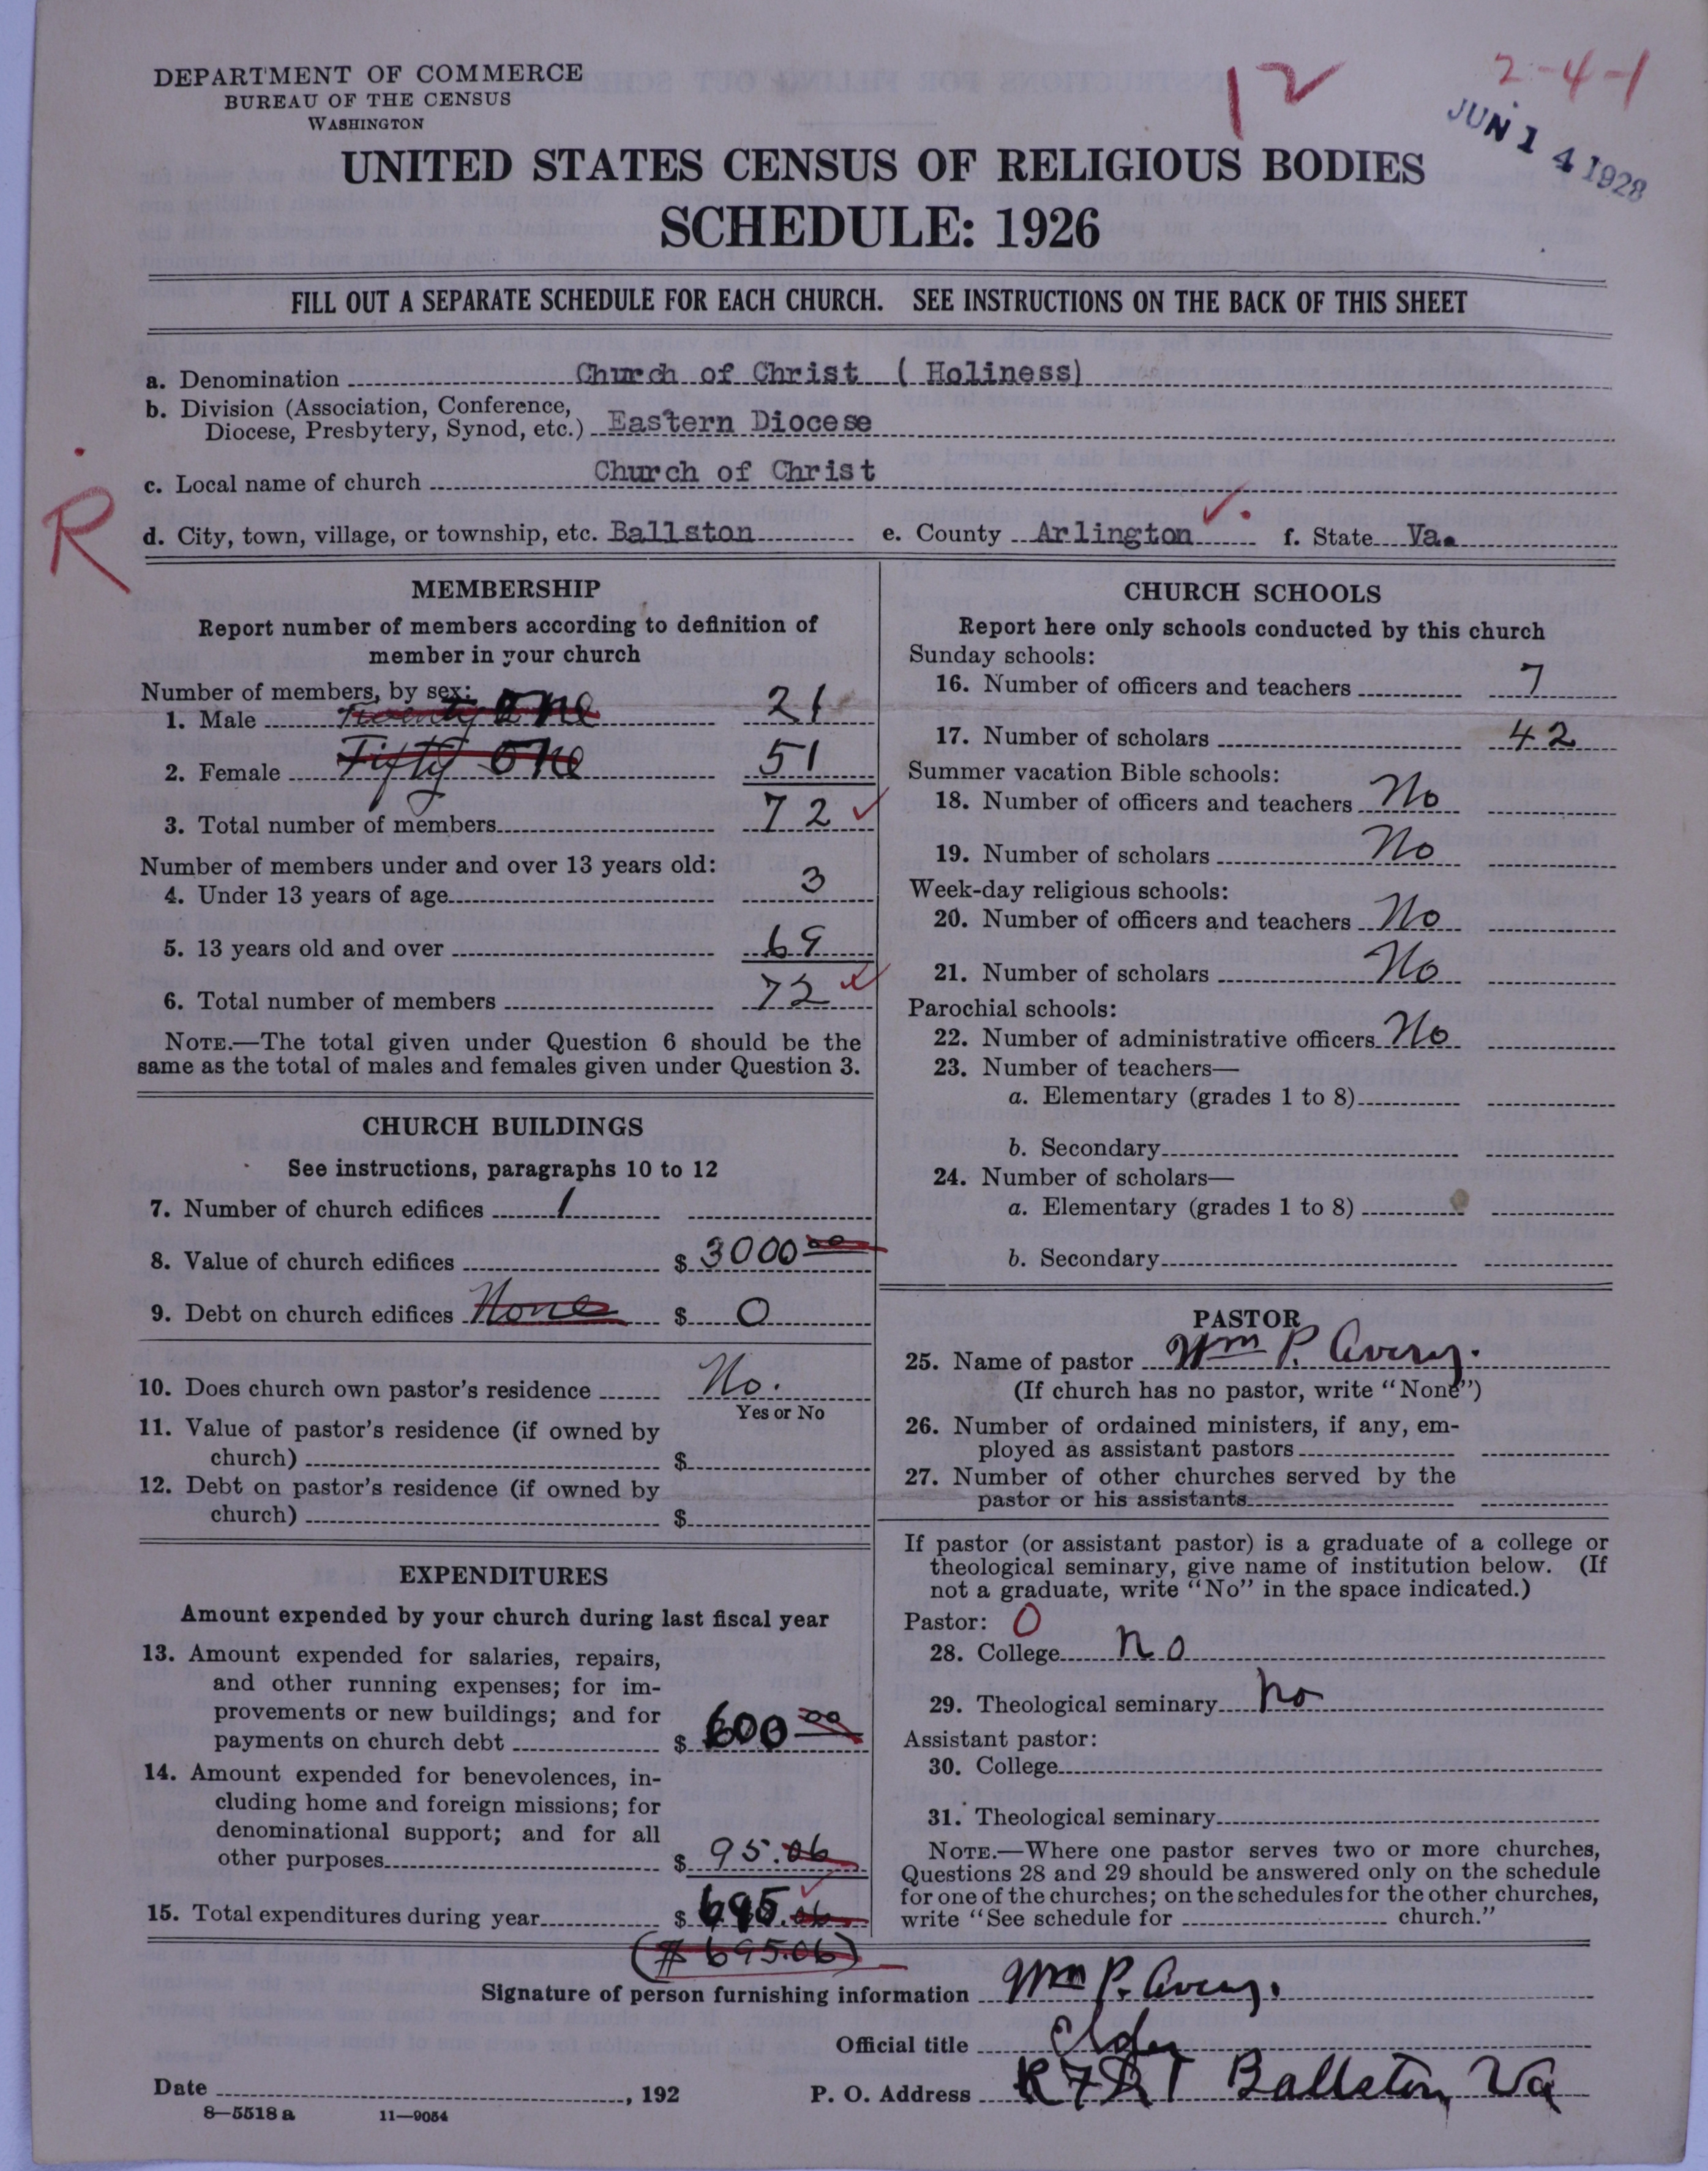 DEPARTMENT OF COMMERCE
BUREAU OF THE CENSUS
WASHINGTON
12
2-4-1
JUN 14 1928
UNITED STATES CENSUS OF RELIGIOUS BODIES
SCHEDULE: 1926
FILL OUT A SEPARATE SCHEDULE FOR EACH CHURCH. SEE INSTRUCTIONS ON THE BACK OF THIS SHEET
a. Denomination Church of Christ ( Holiness)
b. Division (Association, Conference,
Diocese, Presbytery, Synod, etc.) Eastern Diocese
c. Local name of church Church of Christ
R
d. City, town, village, or township, etc. Ballston e. County Arlington f. State Va.
MEMBERSHIP
Report number of members according to definition of
member in your church
Number of members, by sex:
1. Male Twenty One 21
2. Female Fifty One 51
3. Total number of members 72
Number of members under and over 13 years old:
4. Under 13 years of age 3
5. 13 years old and over 69
6. Total number of members 72
NOTE.—The total given under Question 6 should be the
same as the total of males and females given under Question 3.
CHURCH BUILDINGS
See instructions, paragraphs 10 to 12
7. Number of church edifices 1
8. Value of church edifices $ 3000 00
9. Debt on church edifices None $ 0
10. Does church own pastor's residence No.
Yes or No
11. Value of pastor's residence (if owned by
church) $
12. Debt on pastor's residence (if owned by
church) $
EXPENDITURES
Amount expended by your church during last fiscal year
13. Amount expended for salaries, repairs,
and other running expenses; for im-
provements or new buildings; and for
payments on church debt $ 600 00
14. Amount expended for benevolences, in-
cluding home and foreign missions; for
denominational support; and for all
other purposes $ 95.06
15. Total expenditures during year $ 695.06
($ 695.06)
CHURCH SCHOOLS
Report here only schools conducted by this church
Sunday schools:
16. Number of officers and teachers 7
17. Number of scholars 42
Summer vacation Bible schools:
18. Number of officers and teachers No
19. Number of scholars No
Week-day religious schools:
20. Number of officers and teachers No
21. Number of scholars No
Parochial schools:
22. Number of administrative officers No
23. Number of teachers—
a. Elementary (grades 1 to 8)
b. Secondary
24. Number of scholars—
a. Elementary (grades 1 to 8)
b. Secondary
PASTOR
25. Name of pastor Wm P. Avery.
(If church has no pastor, write "None")
26. Number of ordained ministers, if any, em-
ployed as assistant pastors
27. Number of other churches served by the
pastor or his assistants
If pastor (or assistant pastor) is a graduate of a college or
theological seminary, give name of institution below. (If
not a graduate, write "No" in the space indicated.)
Pastor: 0
28. College no
29. Theological seminary no
Assistant pastor:
30. College
31. Theological seminary
NOTE.—Where one pastor serves two or more churches,
Questions 28 and 29 should be answered only on the schedule
for one of the churches; on the schedules for the other churches,
write "See schedule for church."
Signature of person furnishing information Wm P. Avery.
Official title Elder
Date , 192 P. O. Address RFD 1 Ballston, Va
8—5518 a 11—9054